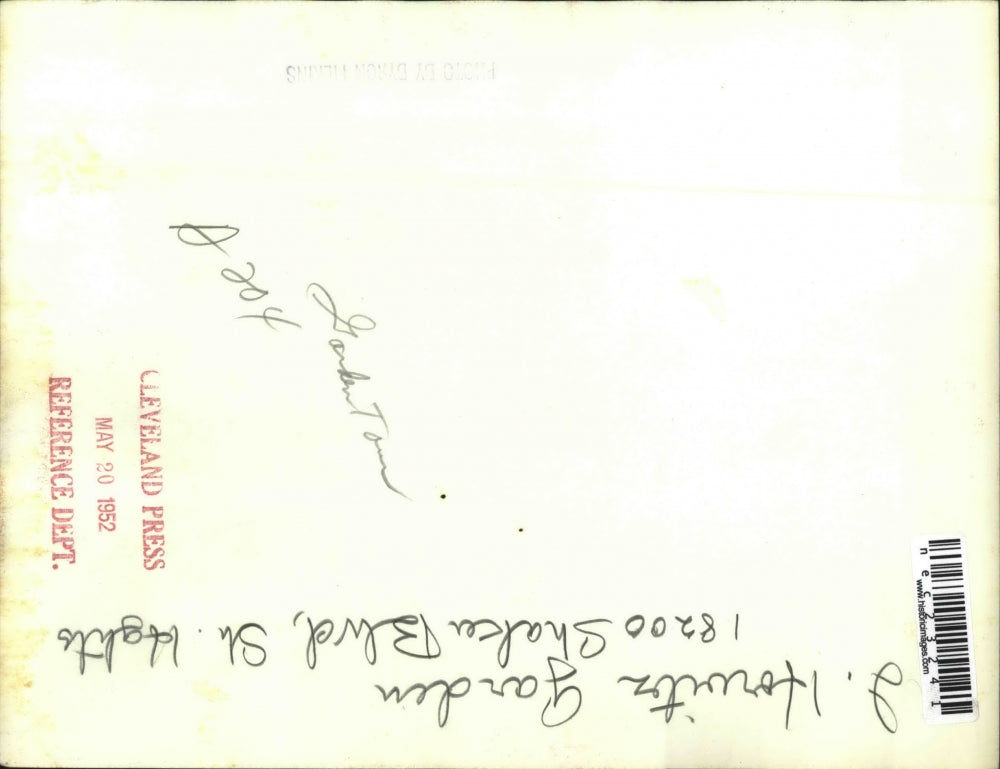 PHOTO BY BYRON FILKINS
Garden Tour
CLEVELAND PRESS
MAY 20 1952
REFERENCE DEPT.
I. Horwitz Garden
18200 Shaker Blvd, Sh. Hghts
nec23241
www.historicimages.com